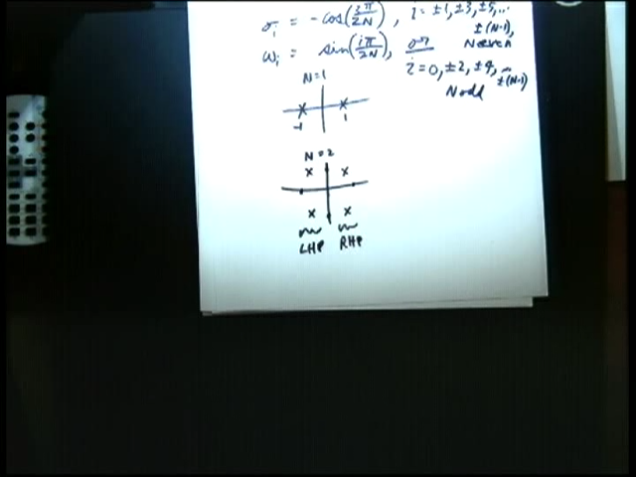 σᵢ = -cos(iπ/2N), i = ±1, ±3, ±5, ...
± (N-1),
N even
ωᵢ = sin(iπ/2N), or
i = 0, ±2, ±4, ... ±(N-1)
N odd
N=1
-1 1
N=2
LHP RHP